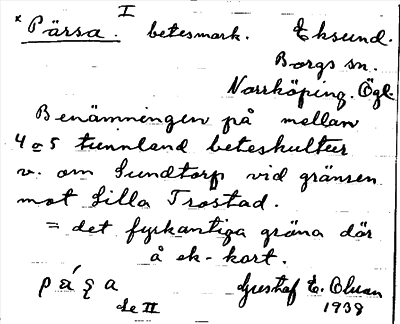 I
x Pärsa. betesmark. Eksund.
Borgs sn.
Norrköping. Ögl.
Benämningen på mellan
4 o 5 tunnland beteskultur
v. om Sundtorp vid gränsen
mot Lilla Trostad.
= det fyrkantiga gröna där
å ek-kort.
Se II
Gustaf E. Olsson
1938